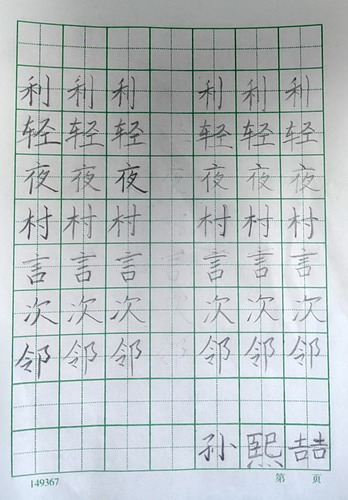 利利利利利利
轻轻轻轻轻轻
夜夜夜夜夜夜
村村村村村村
言言言言言言
次次次次次次
邻邻邻邻邻邻
孙熙喆
149367 第 页